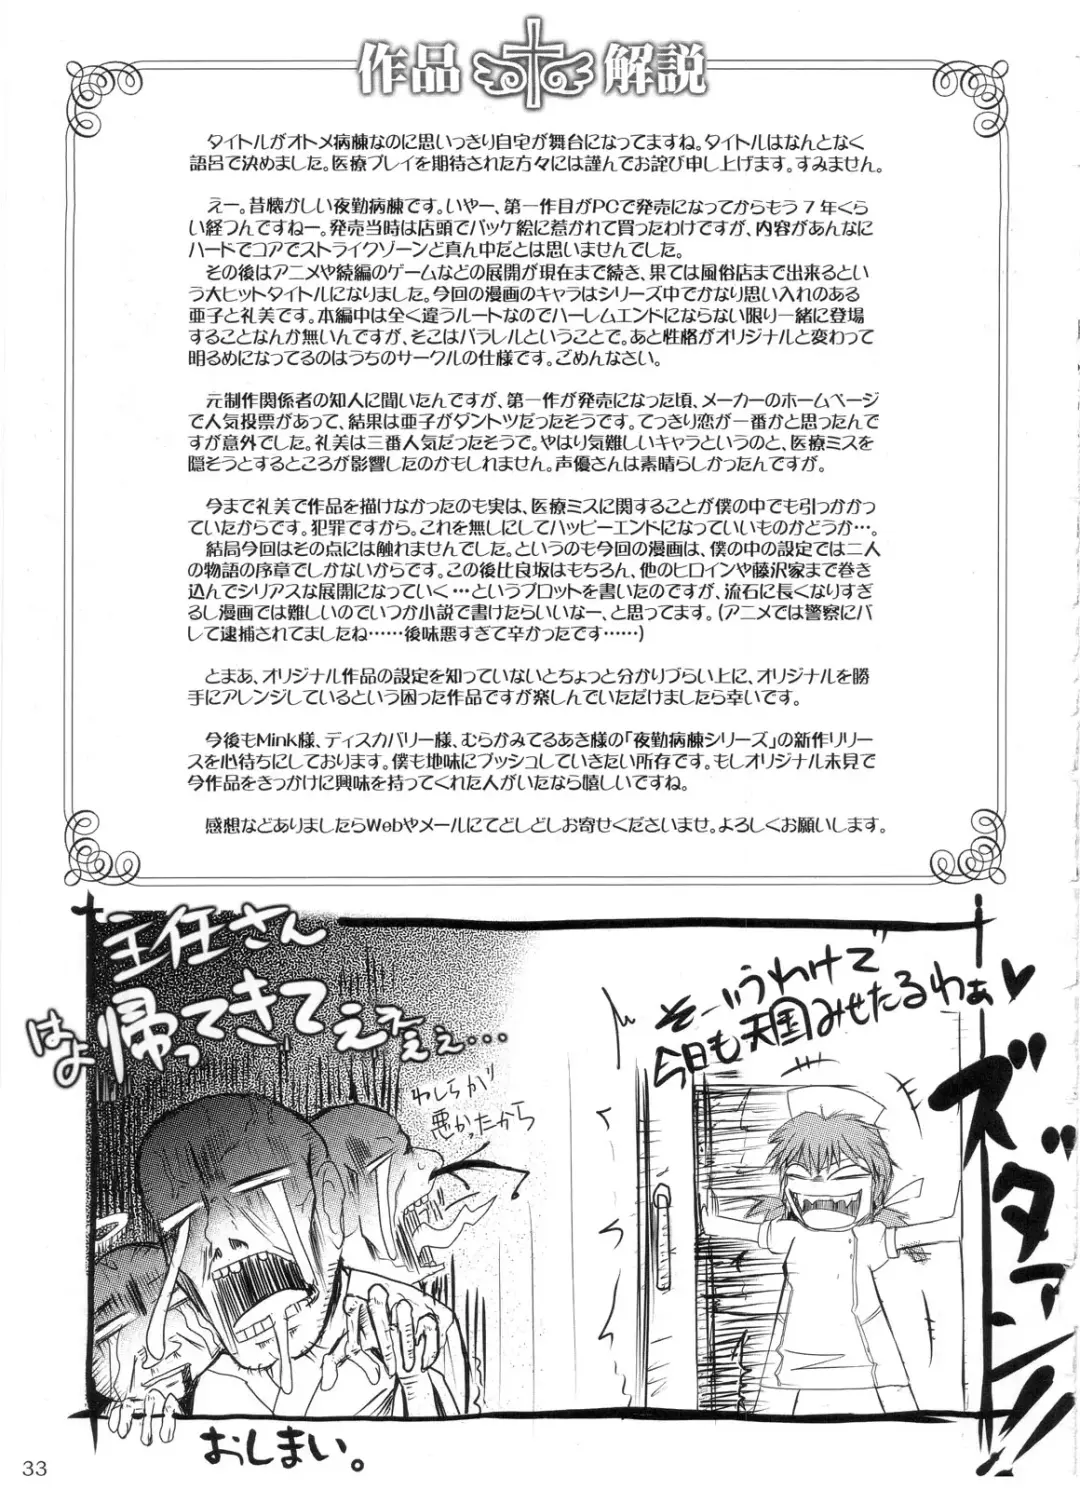 作品 解説
タイトルがオトメ病棟なのに思いっきり自宅が舞台になってますね。タイトルはなんとなく
語呂で決めました。医療プレイを期待された方々には謹んでお詫び申し上げます。すみません。
えー。昔懐かしい夜勤病棟です。いやー、第一作目がPCで発売になってからもう7年くら
い経つんですねー。発売当時は店頭でパッケ絵に惹かれて買ったわけですが、内容があんなに
ハードでコアでストライクゾーンど真ん中だとは思いませんでした。
その後はアニメや続編のゲームなどの展開が現在まで続き、果ては風俗店まで出来るとい
う大ヒットタイトルになりました。今回の漫画のキャラはシリーズ中でかなり思い入れのある
亜子と礼美です。本編中は全く違うルートなのでハーレムエンドにならない限り一緒に登場
することなんか無いんですが、そこはパラレルということで。あと性格がオリジナルと変わって
明るめになってるのはうちのサークルの仕様です。ごめんなさい。
元制作関係者の知人に聞いたんですが、第一作が発売になった頃、メーカーのホームページ
で人気投票があって、結果は亜子がダントツだったそうです。てっきり恋が一番かと思ったんで
すが意外でした。礼美は三番人気だったそうで。やはり気難しいキャラというのと、医療ミスを
隠そうとするところが影響したのかもしれません。声優さんは素晴らしかったんですが。
今まで礼美で作品を描けなかったのも実は、医療ミスに関することが僕の中でも引っかかっ
ていたからです。犯罪ですから。これを無しにしてハッピーエンドになっていいものかどうか…。
結局今回はその点には触れませんでした。というのも今回の漫画は、僕の中の設定では二人
の物語の序章でしかないからです。この後比良坂はもちろん、他のヒロインや藤沢家まで巻き
込んでシリアスな展開になっていく…というプロットを書いたのですが、流石に長くなりすぎ
るし漫画では難しいのでいつか小説で書けたらいいなー、と思ってます。(アニメでは警察にバ
レて逮捕されてましたね……後味悪すぎて辛かったです……)
とまあ、オリジナル作品の設定を知っていないとちょっと分かりづらい上に、オリジナルを勝
手にアレンジしているという困った作品ですが楽しんでいただけましたら幸いです。
今後もMink様、ディスカバリー様、むらかみてるあき様の「夜勤病棟シリーズ」の新作リリー
スを心待ちにしております。僕も地味にプッシュしていきたい所存です。もしオリジナル未見で
今作品をきっかけに興味を持ってくれた人がいたなら嬉しいですね。
感想などありましたらWebやメールにてどしどしお寄せくださいませ。よろしくお願いします。
主任さん
はよ帰ってきてぇえぇぇ…
わしらが
悪かったから
そーいうわけで
今日も天国みせたるわぁ♥
ズダァン!!
おしまい。
33